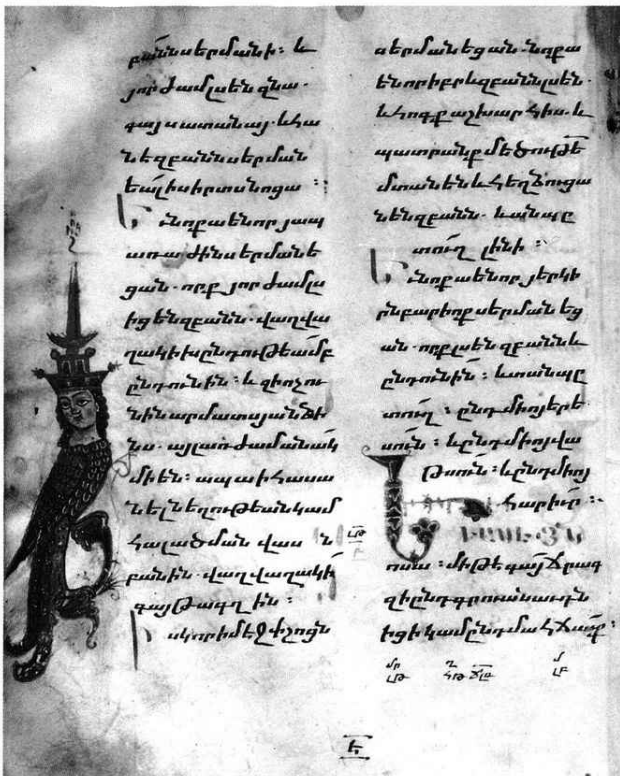 բանն սերմանի։ և
յորժամ լսեն գնա.
գայ սատանայ. և հա
նե զբանն սերման
եալ ի սիրտս նոցա ։
Եւ նոքա են որ յապ
առաժին սերմանե
ցան. որք յորժամ լս
իցեն զբանն. վաղվա
ղակի խընդութեամբ
ընդունին։ և զի ոչ ու
նին արմատս յանձի
նս. այլ առ ժամանակ
մի են։ ապա ի հասա
նել նեղութեան կամ
հալածման վասն
բանին. վաղվաղակի
գայթագղին։
Իսկ որ ի մեջ փշոցն
սերմանեցան. նոքա
են որ իբրև զբանն լսեն.
և հոգք աշխարհիս. և
պատրանք մեծութե
մտանեն և հեղձուցա
նեն զբանն. և անպը
տուղ լինի ։
Եւ նոքա են որ յերկի
րն բարիոք սերմանեց
ան. որք լսեն զբանն և
ընդունին։ և տան պը
տուղ։ ընդ միոյ երե
սուն։ և ընդ միոյ վա
թսուն։ և ընդ միոյ
հարիւր։
նոսա։ մի թե գայ ճրագ
զի ընդ գրուանաւ դն
իցի կամ ընդ մահճաւք։
Ե